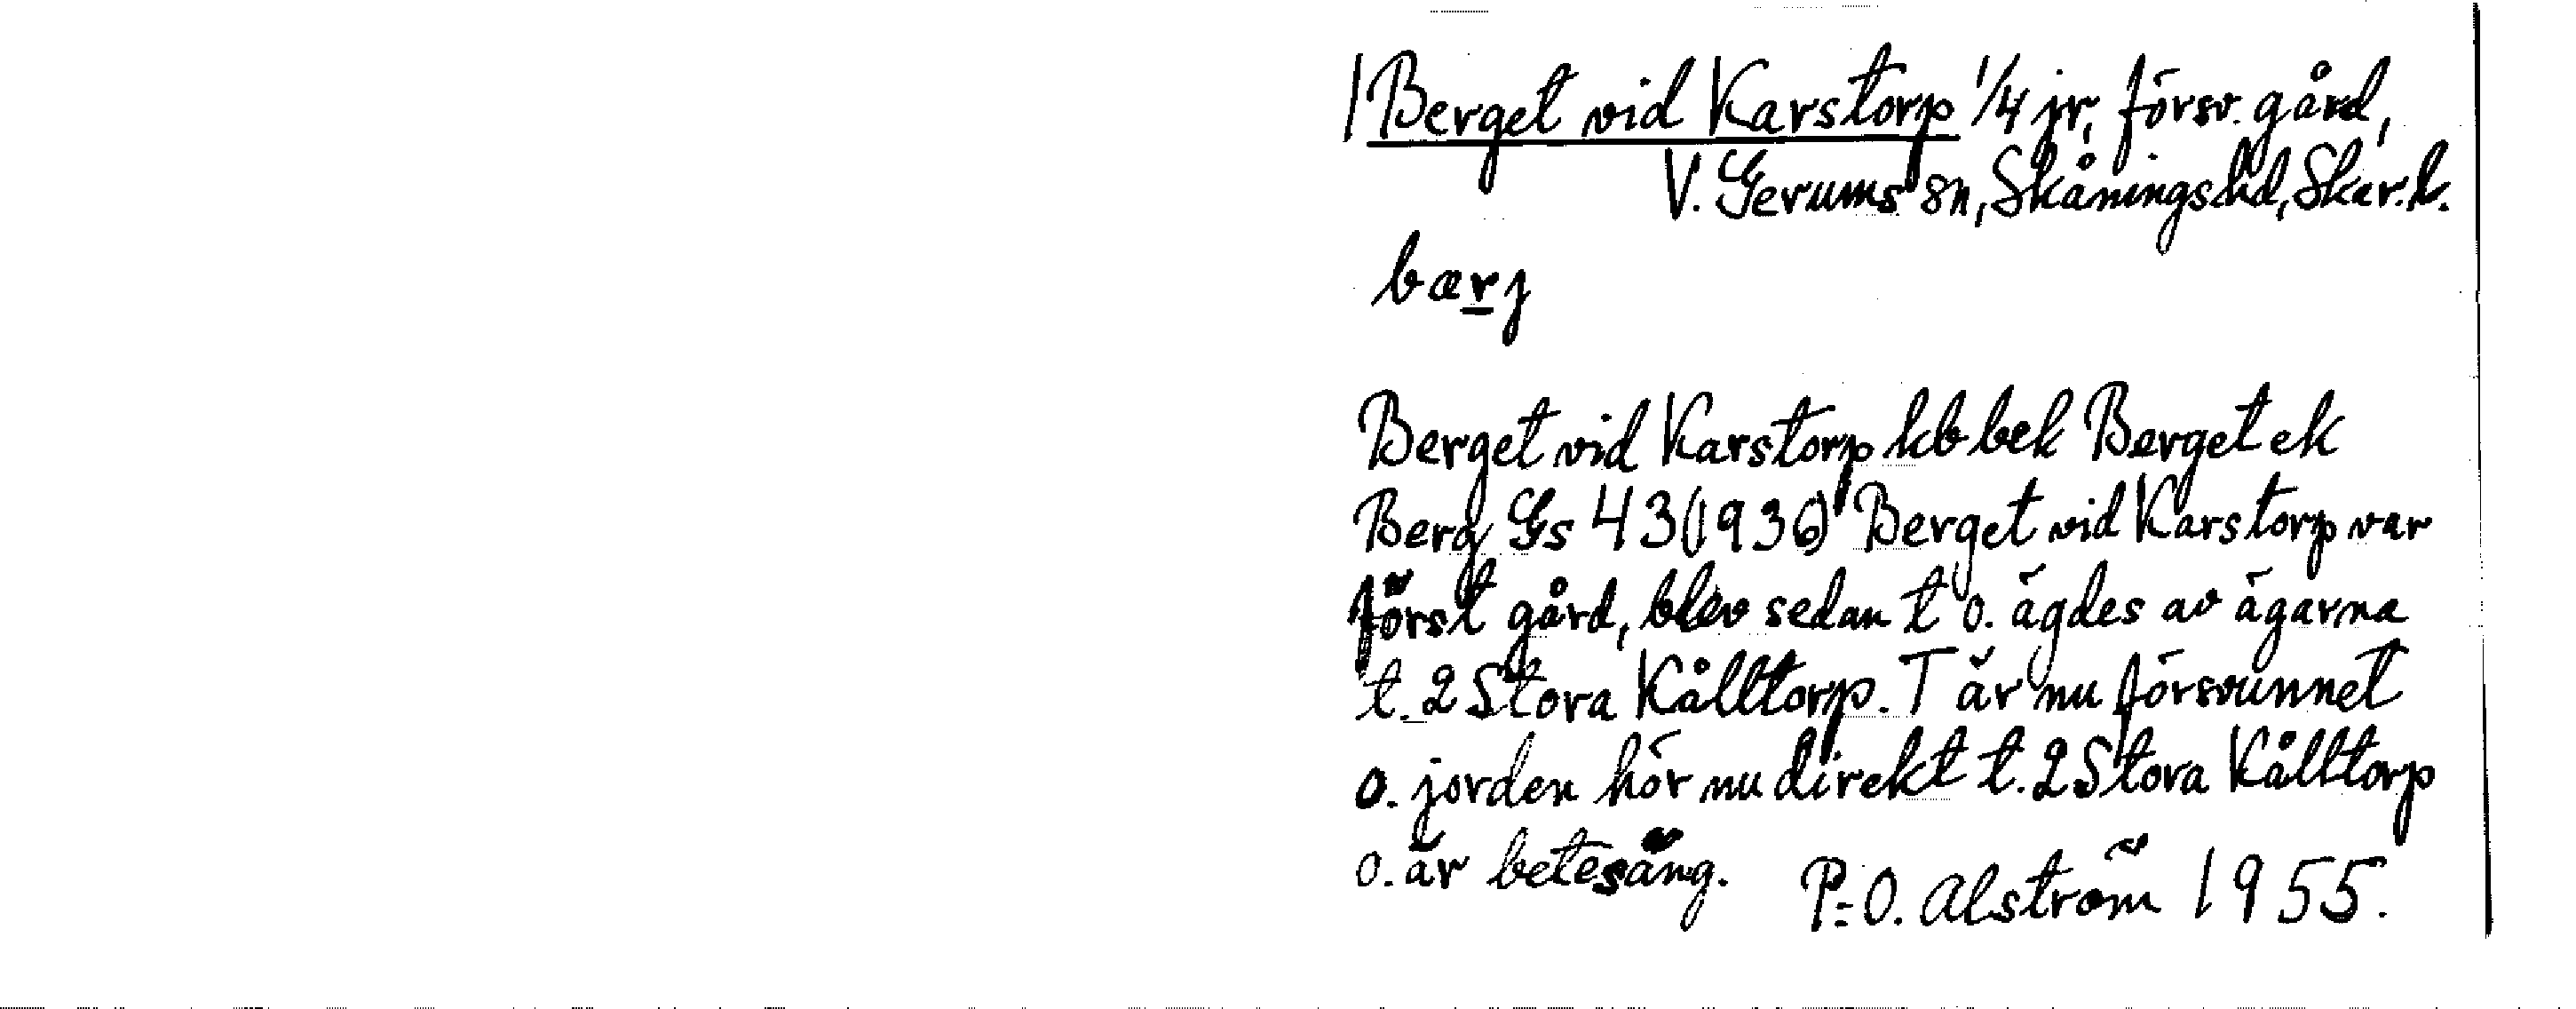 1 Berget vid Karstorp 1/4 jr, försv. gård,
V. Gerums sn, Skånings hd, Skar. l.
bærj
Berget vid Karstorp kb bek Berget ek
Berg Gs 43 (1936) Berget vid Karstorp var
först gård, blev sedan t o. ägdes av ägarna
t. 2 Stora Kålltorp. T är nu försvunnet
o. jorden hör nu direkt t. 2 Stora Kålltorp
o. är betesäng. P-O. Alström 1955.